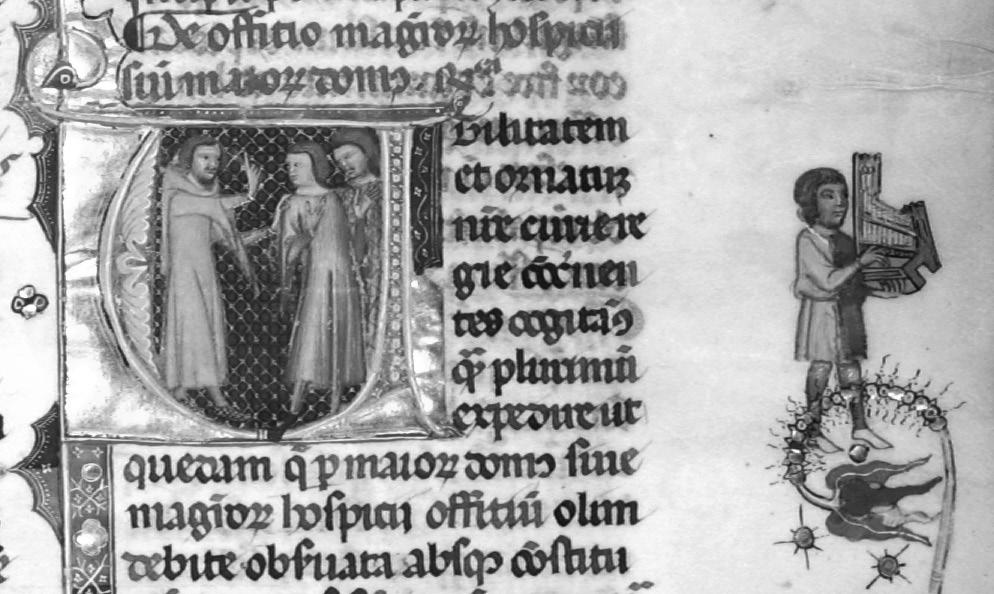 De offitio magiorꝝ hospicii
sui maiorꝝ domꝰ
Utilitatem
et ornatuꝫ
nr̄e curie re
gie
tes cogitãꝰ
qr̃ plurimũ
expedire ut
quedam q̃ ꝑ maiorꝝ domꝰ siue
magiorꝝ hospicii offitiũ olim
debite obs̃uata absqꝫ cõstitu